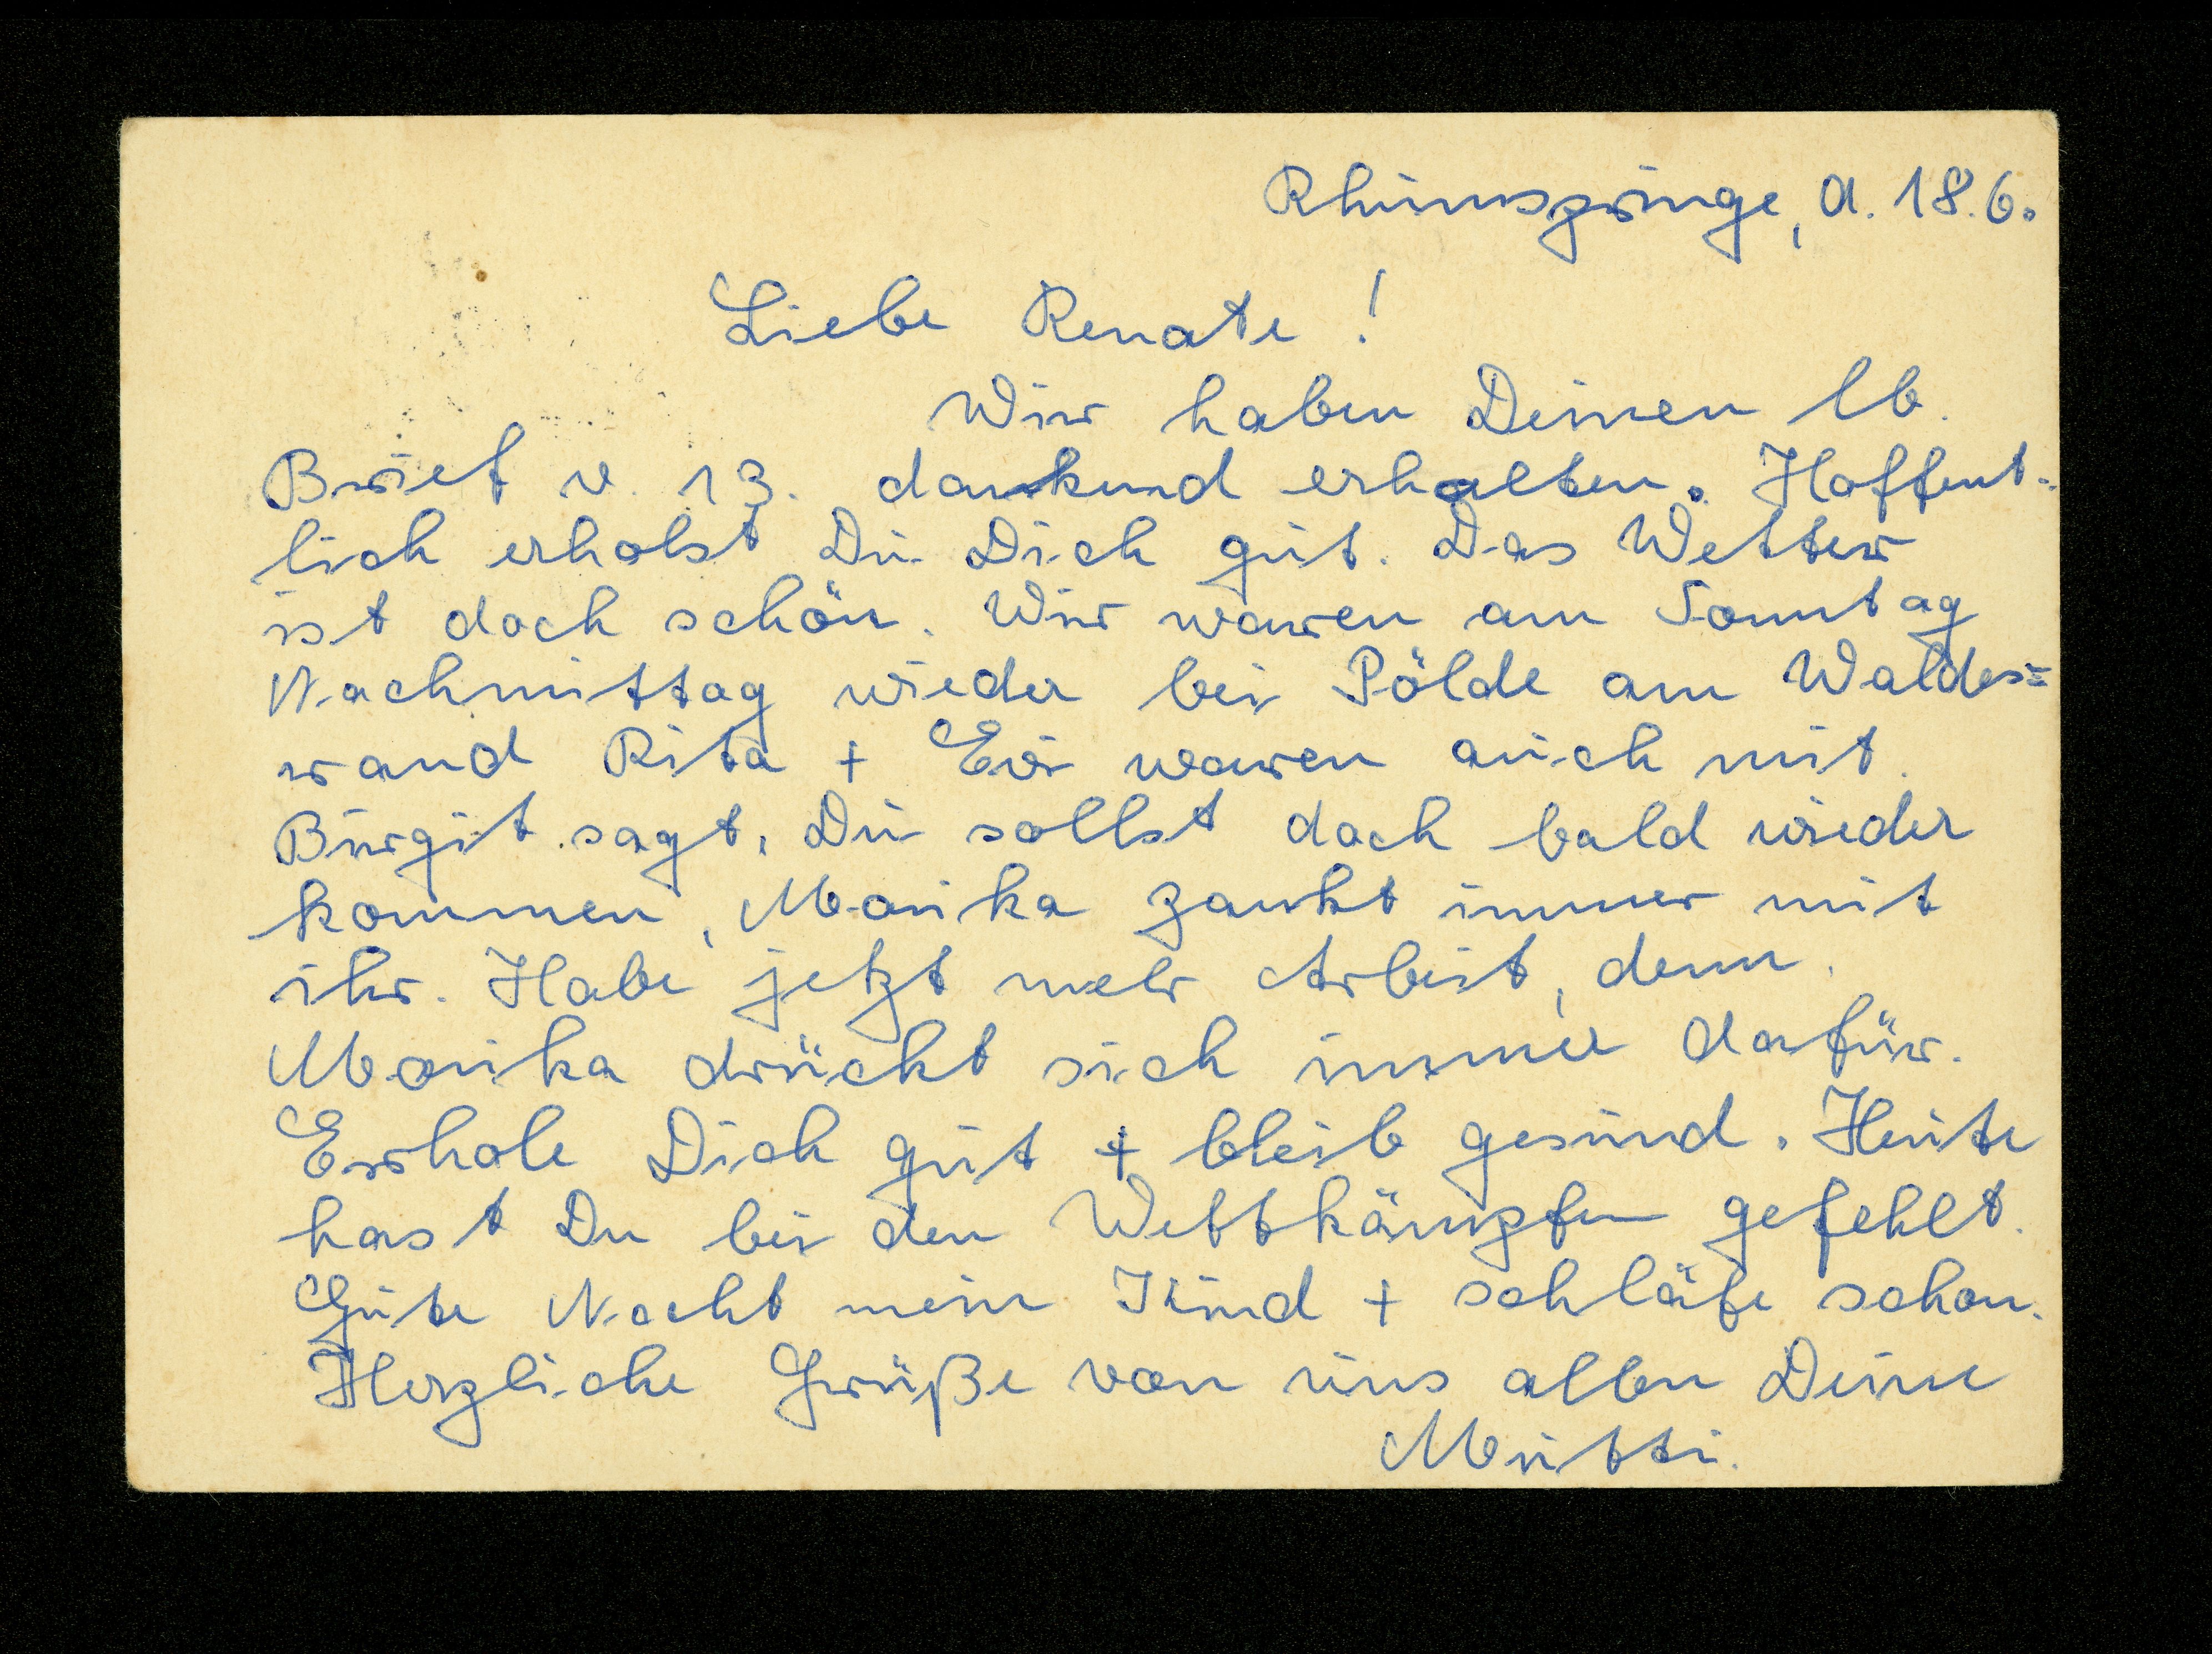 Rhumspringe, d. 18.6.
Liebe Renate!
Wir haben Deinen lb.
Brief v. 13. dankend erhalten. Hoffent-
lich erholst Du Dich gut. Das Wetter
ist doch schön. Wir waren am Sonntag
Nachmittag wieder bei Pölde am Waldes=
rand Rita + Evi waren auch mit.
Birgit sagt, Du sollst doch bald wieder
kommen, Monika zankt immer mit
ihr. Habe jetzt mehr Arbeit, denn
Monika drückt sich immer dafür.
Erhole Dich gut + bleib gesund. Heute
hast Du bei den Wettkämpfen gefehlt.
Gute Nacht mein Kind + schlafe schön.
Herzliche Grüße von uns allen Deine
Mutti.